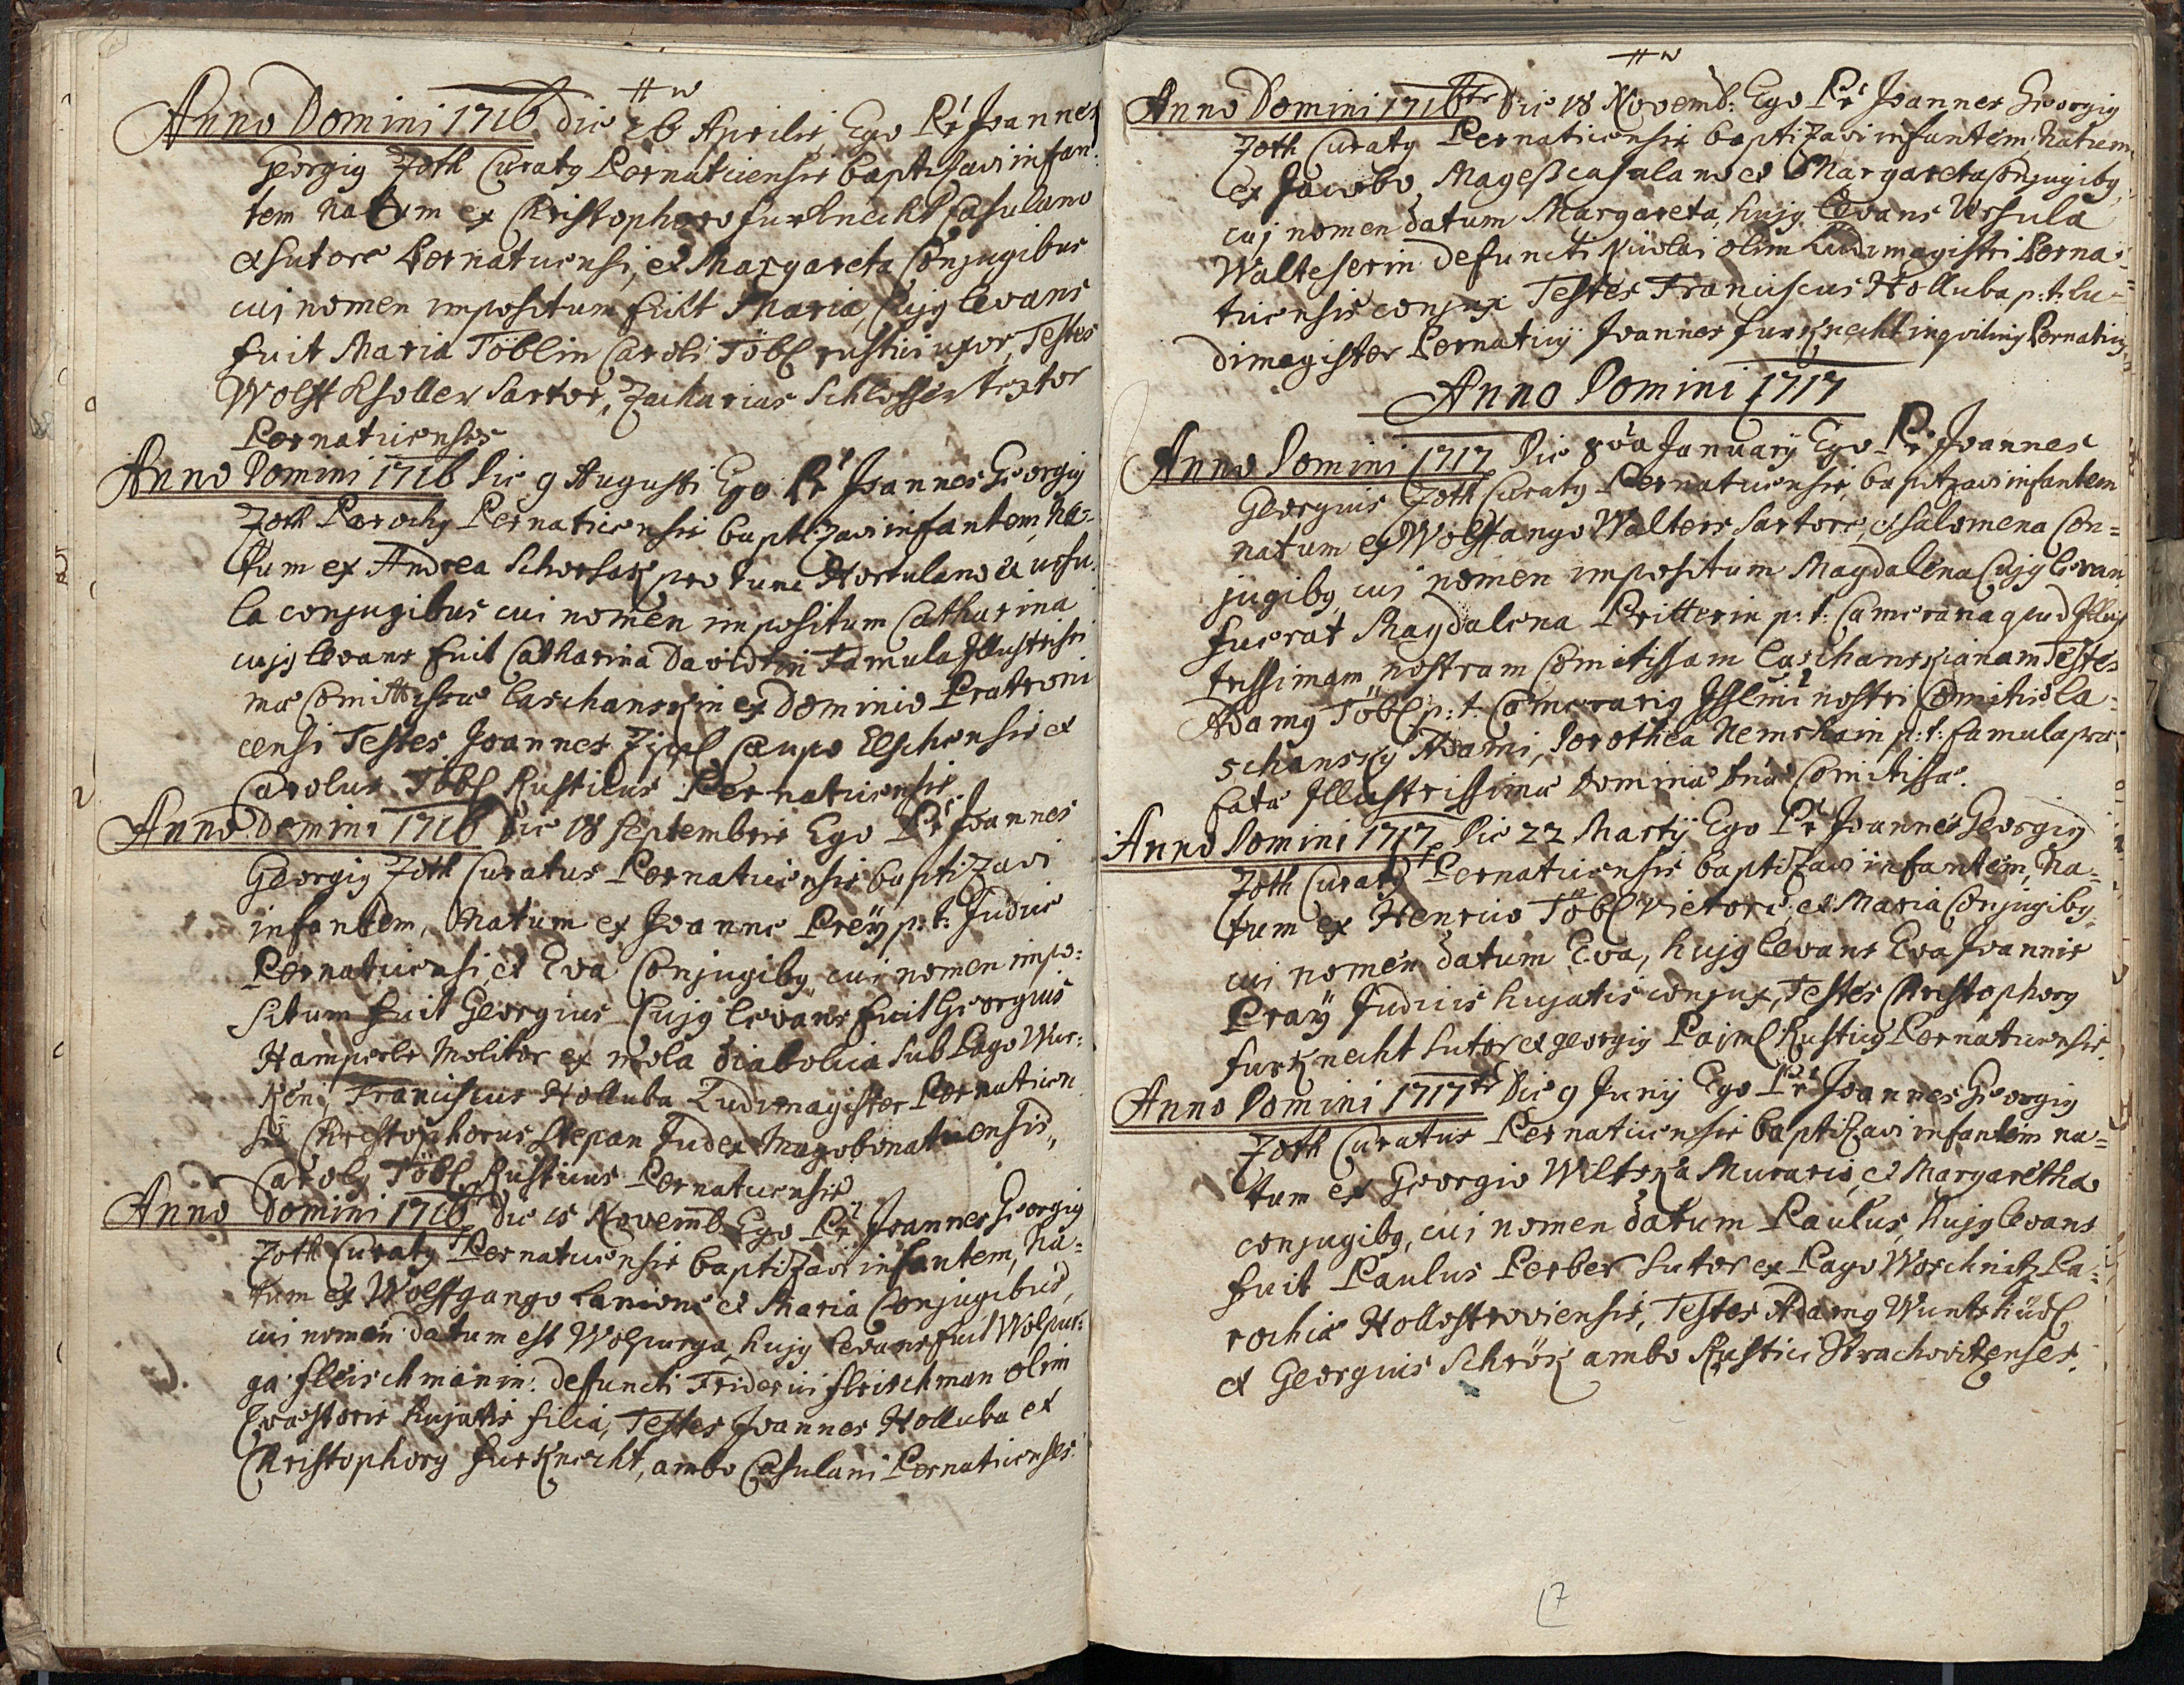 Anno Domini 1716 die 26 Aprilis, Ego Pr Joannes
Georgig Joth Curatg Pernaticensis baptisavi infan:
tem natum ex Christophoro furknecht Casulano
et sutore Pernaticensi, et Margareta Conjugibus
cuj nomen impositum fuit Maria, Cujg levans
fuit Maria Töblin Caroli Töbl rustici uxor, Testes
Wolff Ksoller Sartor, Zacharias Schlosser textor
Pernaticenses
Anno Domini 1716 Die 9 Augusti Ego Pr Joannes Georgig
Joth Parochg Pernaticensis baptizavi infantem, na=
tum ex Andrea Schorsak pro tunc Hortulano et ursu:
la conjugibus cui nomen impositum Catharina
cujg levans fuit Catharina Davidtin Famula Illustrissi
mæ Comitissæ Laschanskin ex Dominio Pratroni
censi Testes Joannes Zipl Caupo Elschensis et
Carolus Töbl Rusticus Pernaticensis.
Anno Domini 1716 Die 18 Septembris Ego Pr Joannes
Georgig Joth Curatus Pernaticensis baptizavi
infantem, Natum ex Joanne Preÿ p: t: Judice
Pernaticensi, et Eva Conjugibg, cui nomen impo:
situm fuit Georgius Cujg levans fuit Georgius
Hamperle Molitor ex mola diabolica sub Pago Wur:
ken, Franciscus Holluba Ludimagister Pernaticen
sis Christophorus Stepan Judex Magobonaticensis,
Carolg Töbl Rusticus Pernaticensis
Anno Domini 1716 Die 15 Novemb Ego Pr Joannes Georgig
Joth Curatg Pernaticensis baptizavi infantem, Na=
tum ex Wolffgango Lanione et Maria Conjugibus,
cui nomen datum est Wolpurga, hujg levans fuit Wolpur:
ga fleischmanin: defuncti Friderici fleischman olim
Quæstoris hujatis filia, Testes Joannes Holluba et
Christophorg furknecht, ambo Casulani Pernaticenses.
Anno Domini 1716 Die 18 Novemb: Ego Pr Joannes Georgig
Joth Curatg Pernaticensis baptizavi infantem, natum
ex Jacobo Mageß casulano et Margareta Conjugibg,
cuj nomen datum Margareta, hujg levans Ursula
Walteserin defuncti Nicolai olim Ludimagistri Perna=
ticensis conjux Testes Franciscus Holluba p: t: lu=
dimagister Pernaticÿ Joannes furknecht inqviling Pernaticg
Anno Domini 1717
Anno Domini 1717 Die Januarÿ Ego Pr Joannes
Georgius Joth Curatg Pernaticensis baptizavi infantem
natum ex Wolffango Walters Sartore, et Salomena Con=
jugibg, cui nomen impositum Magdalena Cujg levan
fuerat Magdalena Pritterin p: t: Camerana apud Illus
trissimam nostram Comitissam Laschanskianam Testes
Adamg Töbl p: t: Camerarig Illmi nostri Comitis La=
schanskÿ Adami, Dorothea Nemskain p: t: famula præ
fatæ Illustrissimæ Dominæ Dnæ Comitissæ.
Anno Domini 1717 Die 22 Martÿ Ego Pr Joannes Georgig
Joth Curatg Pernaticensis baptizavi infantem, Na=
tum ex Henrico Töbl Vietore, et Maria Conjugibg,
cui nomen datum Eva, hujg levans Eva Joannis
Praÿ Judicis hujatis conjux, Testes Christophorg
furknecht Sutor et georgig Paiml Rusticg Pernaticensis.
Anno Domini 1717 Die 9 Junÿ Ego Pr Joannes Georgig
Joth Curatus Pernaticensis baptizavi infantem na=
tum ex Georgio Wiltska Murario, et Margaretha
conjugibg, cui nomen datum Paulus, hujg levans
fuit Paulus Perber Sutor ex Pago Worschnitz Pa:
rochiæ Hollostroviensis, Testes Adamg Wuntskürl
et Georgius Schrök ambo Rustici Strachovitzenses.
7